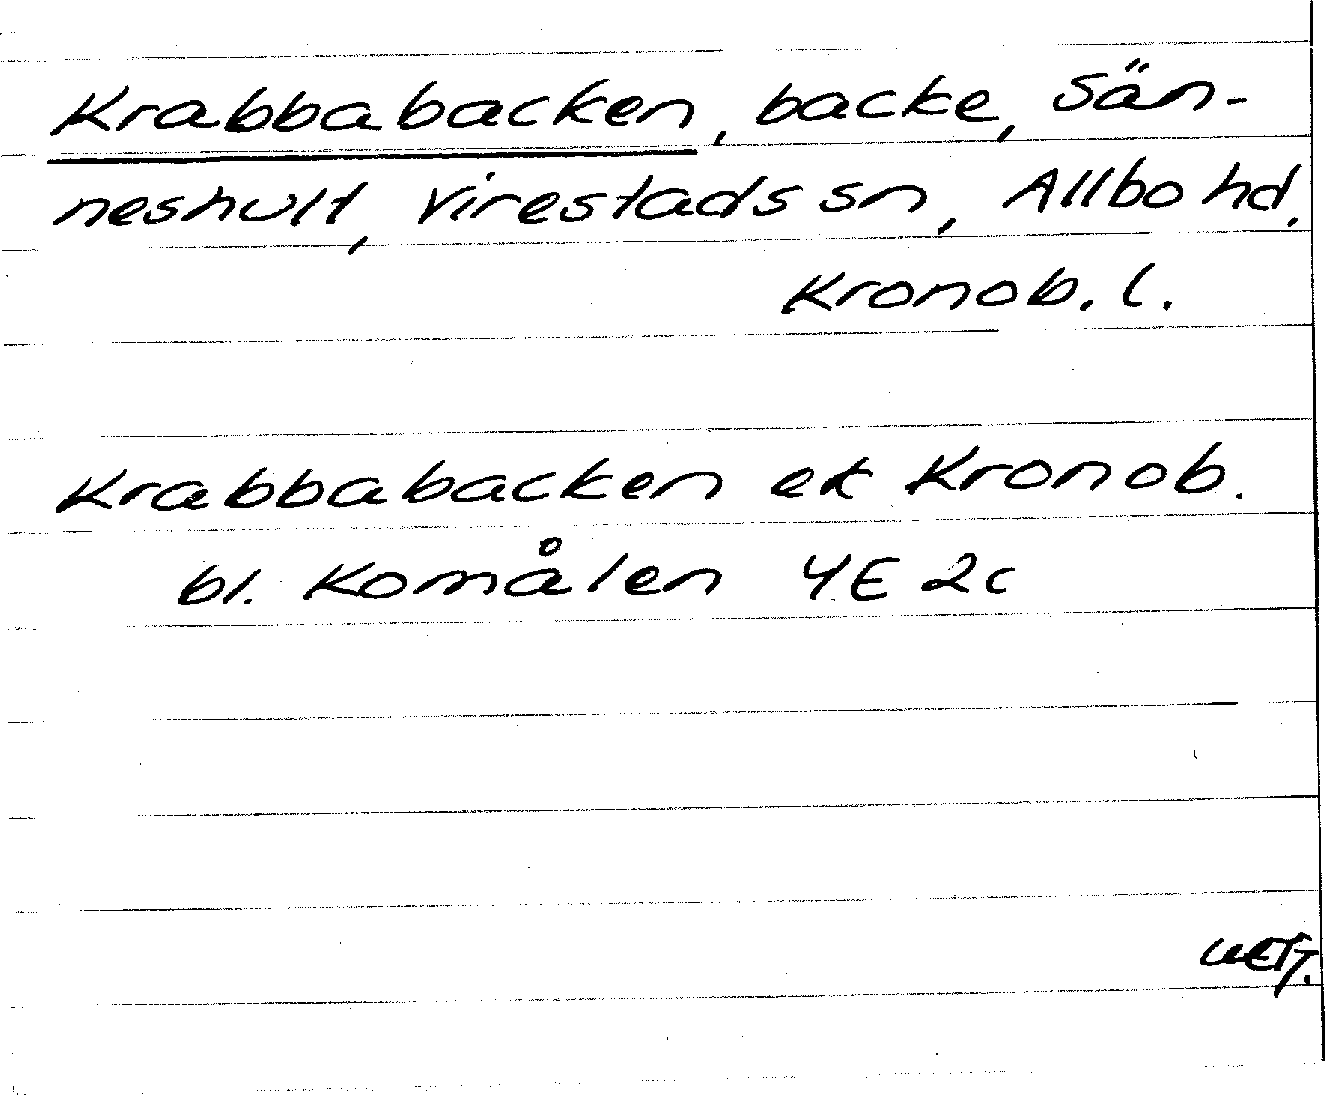 Krabbabacken, backe, Sän-
neshult, Virestads sn, Allbo hd,
Kronob. l.
Krabbabacken ek Kronob.
bl. Komålen 4E 2c